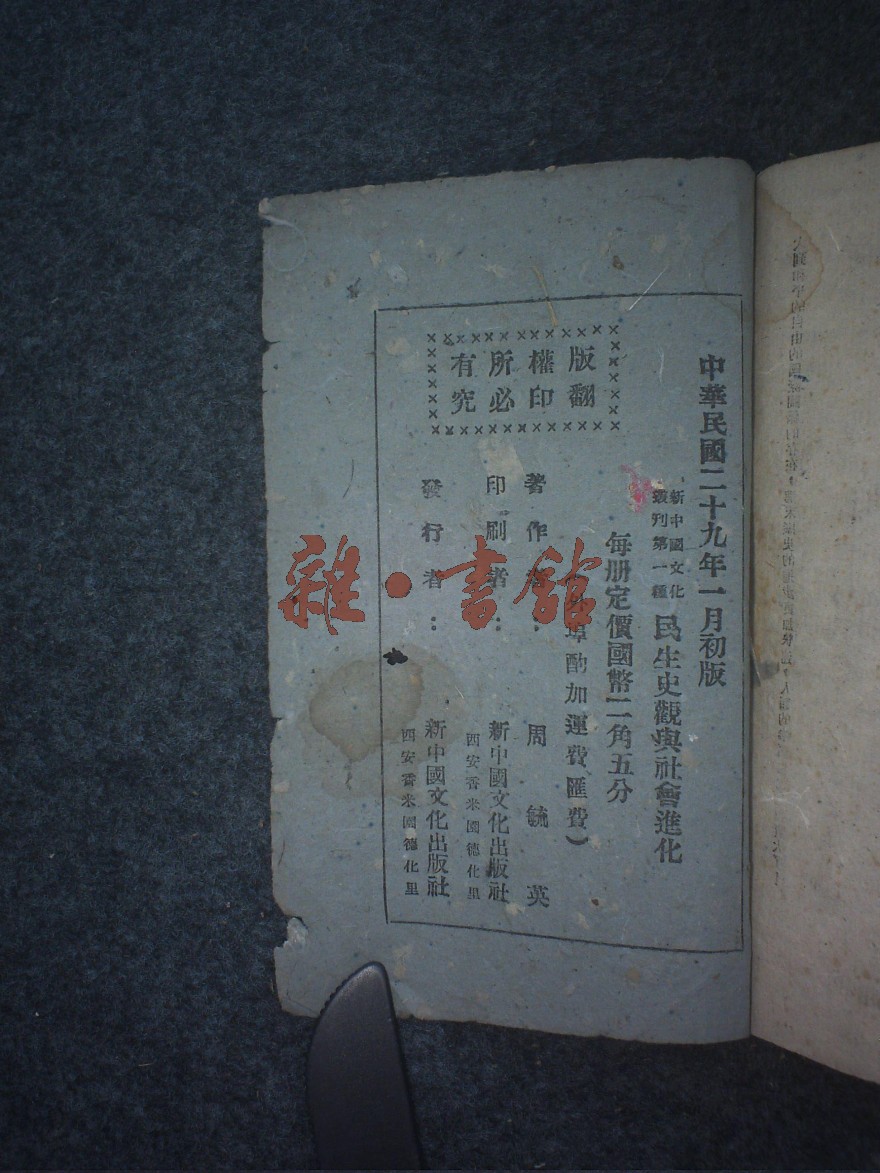 中華民國二十九年一月初版
新中國文化
叢刊第一種
民生史觀與社會進化
每册定價國幣二角五分
外埠酌加運費匯費）
版權所有
翻印必究
著作者：周毓英
印刷者：新中國文化出版社
西安香米園德化里
發行者：新中國文化出版社
西安香米園德化里
雜·書館